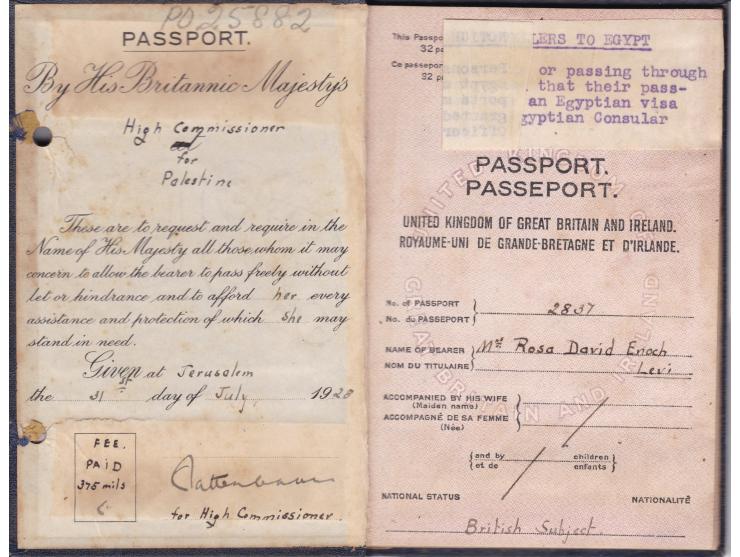 PO25882
PASSPORT.
By His Britannic Majesty's
High Commissioner
for
Palestine
These are to request and require in the
Name of His Majesty all those whom it may
concern to allow the bearer to pass freely without
let or hindrance and to afford her every
assistance and protection of which she may
stand in need.
Given at Jerusalem
the 31st day of July 1928
FEE.
PAID
375 mils
for High Commissioner.
This Passpo
32 pa
Ce passepor
32 p
LERS TO EGYPT
or passing through
that their pass-
an Egyptian visa
gyptian Consular
PASSPORT.
PASSEPORT.
UNITED KINGDOM OF GREAT BRITAIN AND IRELAND.
ROYAUME-UNI DE GRANDE-BRETAGNE ET D'IRLANDE.
No. of PASSPORT
No. du PASSEPORT
2837
NAME OF BEARER
NOM DU TITULAIRE
Mrs Rosa David Enoch
Levi
ACCOMPANIED BY HIS WIFE
(Maiden name)
ACCOMPAGNÉ DE SA FEMME
(Née)
and by children
et de enfants
NATIONAL STATUS NATIONALITÉ
British Subject.